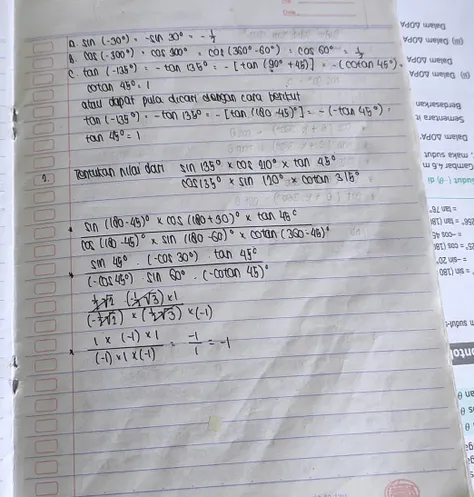 a. sin (-30°) = -sin 30° = -½
b. cos (-300°) = cos 300° = cos (360°-60°) = cos 60° = ½
c. tan (-135°) = -tan 135° = -[tan (90° + 45)] = -(-cotan 45°) =
cotan 45° = 1
atau dapat pula dicari dengan cara berikut
tan (-135°) = -tan 135° = -[tan (180-45)°] = -(-tan 45°) =
tan 45° = 1
2. Tentukan nilai dari sin 135° × cos 210° × tan 45°
cos 135° × sin 120° × cotan 315°
* sin (180-45)° × cos (180+30)° × tan 45°
cos (180-45)° × sin (180-60)° × cotan (360-45)°
sin 45° . (-cos 30°) . tan 45°
* (-cos 45°) . sin 60° . (-cotan 45)°
½√2 (-½√3) × 1
(-½√2) × (½√3) × (-1)
* 1 × (-1) × 1 = -1 = -1
(-1) × 1 × (-1) 1
Dalam ΔOPA
(iii) Dalam ΔOPA
(ii) Dalam ΔOPA
Berdasarkan
Sementara it
Dalam ΔOPA,
, maka sudut
Gambar 4.6 m
sudut (-θ) di
= tan 76°
256° = tan (18
= -cos 45
25° = cos (18
= -sin 20°
= sin (180